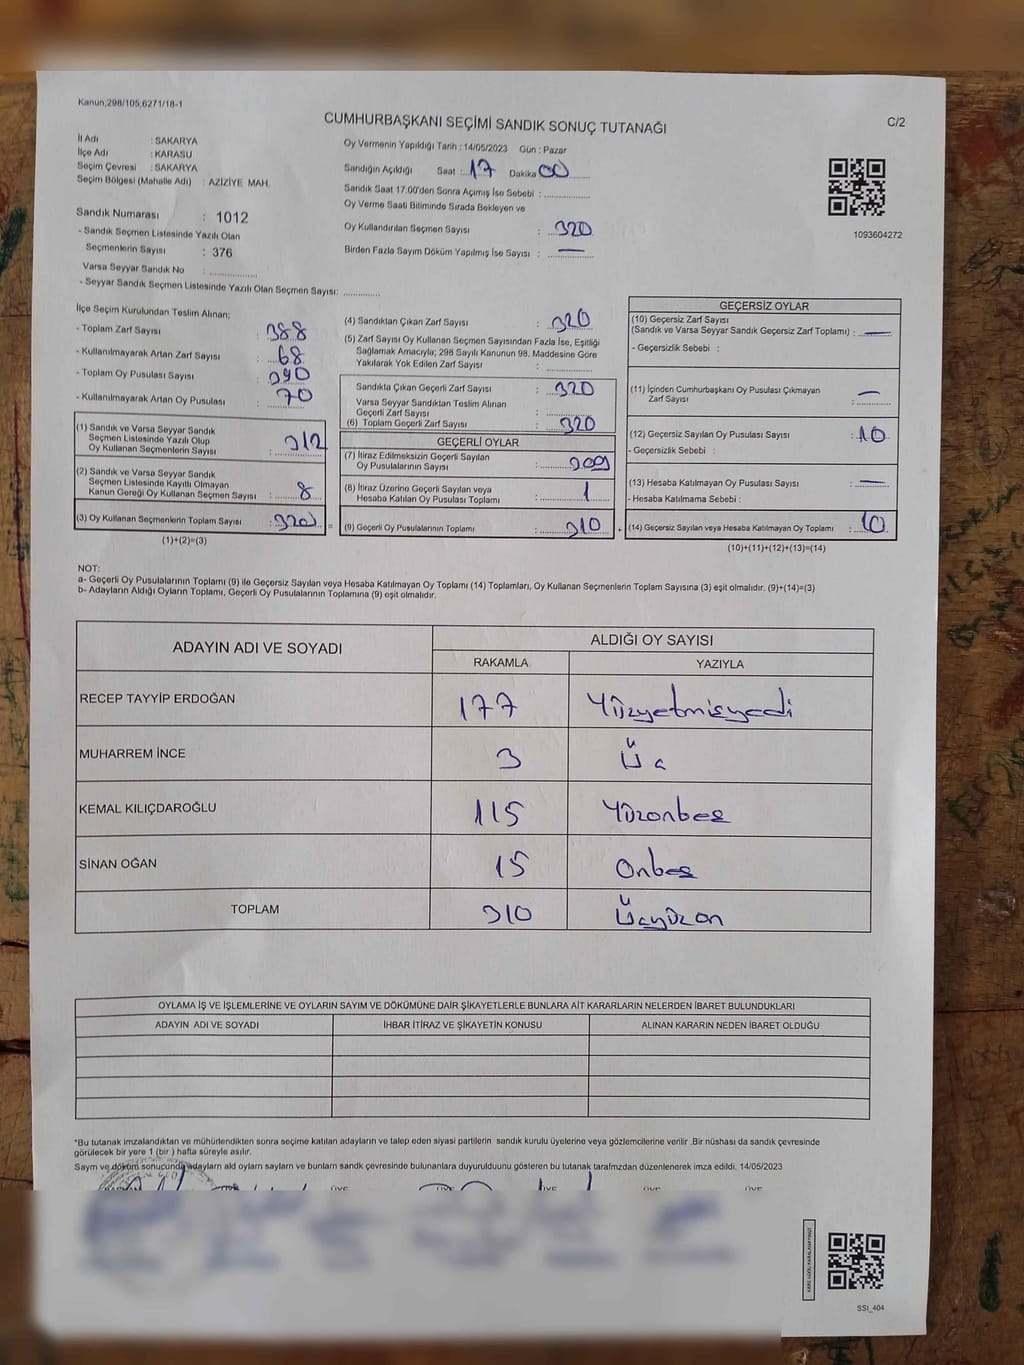 Kanun;298/105,6271/18-1
CUMHURBAŞKANI SEÇİMİ SANDIK SONUÇ TUTANAĞI
C/2
İl Adı : SAKARYA
İlçe Adı : KARASU
Seçim Çevresi : SAKARYA
Seçim Bölgesi (Mahalle Adı) : AZİZİYE MAH.
Sandık Numarası : 1012
- Sandık Seçmen Listesinde Yazılı Olan
Seçmenlerin Sayısı : 376
Varsa Seyyar Sandık No :
- Seyyar Sandık Seçmen Listesinde Yazılı Olan Seçmen Sayısı:
Oy Vermenin Yapıldığı Tarih : 14/05/2023 Gün : Pazar
Sandığın Açıldığı Saat : 17 Dakika 00
Sandık Saat 17:00'den Sonra Açımış İse Sebebi :
Oy Verme Saati Bitiminde Sırada Bekleyen ve
Oy Kullandırılan Seçmen Sayısı : 320
Birden Fazla Sayım Döküm Yapılmış İse Sayısı : —
1093604272
İlçe Seçim Kurulundan Teslim Alınan;
- Toplam Zarf Sayısı : 388
- Kullanılmayarak Artan Zarf Sayısı : 68
- Toplam Oy Pusulası Sayısı : 390
- Kullanılmayarak Artan Oy Pusulası : 70
(1) Sandık ve Varsa Seyyar Sandık
Seçmen Listesinde Yazılı Olup
Oy Kullanan Seçmenlerin Sayısı : 312
(2) Sandık ve Varsa Seyyar Sandık
Seçmen Listesinde Kayıtlı Olmayan
Kanun Gereği Oy Kullanan Seçmen Sayısı : 8
(3) Oy Kullanan Seçmenlerin Toplam Sayısı : 320
(1)+(2)=(3)
(4) Sandıktan Çıkan Zarf Sayısı : 320
(5) Zarf Sayısı Oy Kullanan Seçmen Sayısından Fazla İse, Eşitliği
Sağlamak Amacıyla; 298 Sayılı Kanunun 98. Maddesine Göre
Yakılarak Yok Edilen Zarf Sayısı :
Sandıkta Çıkan Geçerli Zarf Sayısı : 320
Varsa Seyyar Sandıktan Teslim Alınan
Geçerli Zarf Sayısı :
(6) Toplam Geçerli Zarf Sayısı : 320
GEÇERLİ OYLAR
(7) İtiraz Edilmeksizin Geçerli Sayılan
Oy Pusulalarının Sayısı : 309
(8) İtiraz Üzerine Geçerli Sayılan veya
Hesaba Katılan Oy Pusulası Toplamı : 1
(9) Geçerli Oy Pusulalarının Toplamı : 310
=
+
GEÇERSİZ OYLAR
(10) Geçersiz Zarf Sayısı
(Sandık ve Varsa Seyyar Sandık Geçersiz Zarf Toplamı) : —
- Geçersizlik Sebebi :
(11) İçinden Cumhurbaşkanı Oy Pusulası Çıkmayan
Zarf Sayısı : —
(12) Geçersiz Sayılan Oy Pusulası Sayısı : 10
- Geçersizlik Sebebi :
(13) Hesaba Katılmayan Oy Pusulası Sayısı : —
- Hesaba Katılmama Sebebi :
(14) Geçersiz Sayılan veya Hesaba Katılmayan Oy Toplamı : 10
(10)+(11)+(12)+(13)=(14)
NOT:
a- Geçerli Oy Pusulalarının Toplamı (9) ile Geçersiz Sayılan veya Hesaba Katılmayan Oy Toplamı (14) Toplamları, Oy Kullanan Seçmenlerin Toplam Sayısına (3) eşit olmalıdır. (9)+(14)=(3)
b- Adayların Aldığı Oyların Toplamı, Geçerli Oy Pusulalarının Toplamına (9) eşit olmalıdır.
ADAYIN ADI VE SOYADI ALDIĞI OY SAYISI
RAKAMLA YAZIYLA
RECEP TAYYİP ERDOĞAN 177 Yüzyetmişyedi
MUHARREM İNCE 3 Üç
KEMAL KILIÇDAROĞLU 115 Yüzonbeş
SİNAN OĞAN 15 Onbeş
TOPLAM 310 Üçyüzon
OYLAMA İŞ VE İŞLEMLERİNE VE OYLARIN SAYIM VE DÖKÜMÜNE DAİR ŞİKAYETLERLE BUNLARA AİT KARARLARIN NELERDEN İBARET BULUNDUKLARI
ADAYIN ADI VE SOYADI İHBAR İTİRAZ VE ŞİKAYETİN KONUSU ALINAN KARARIN NEDEN İBARET OLDUĞU
*Bu tutanak imzalandıktan ve mühürlendikten sonra seçime katılan adayların ve talep eden siyasi partilerin sandık kurulu üyelerine veya gözlemcilerine verilir .Bir nüshası da sandık çevresinde
görülecek bir yere 1 (bir ) hafta süreyle asılır.
Sayım ve döküm sonucunda adayların ald oylarn sayları ve bunların sandk çevresinde bulunanlara duyurulduunu gösteren bu tutanak tarafmzdan düzenlenerek imza edildi. 14/05/2023
SSI_404